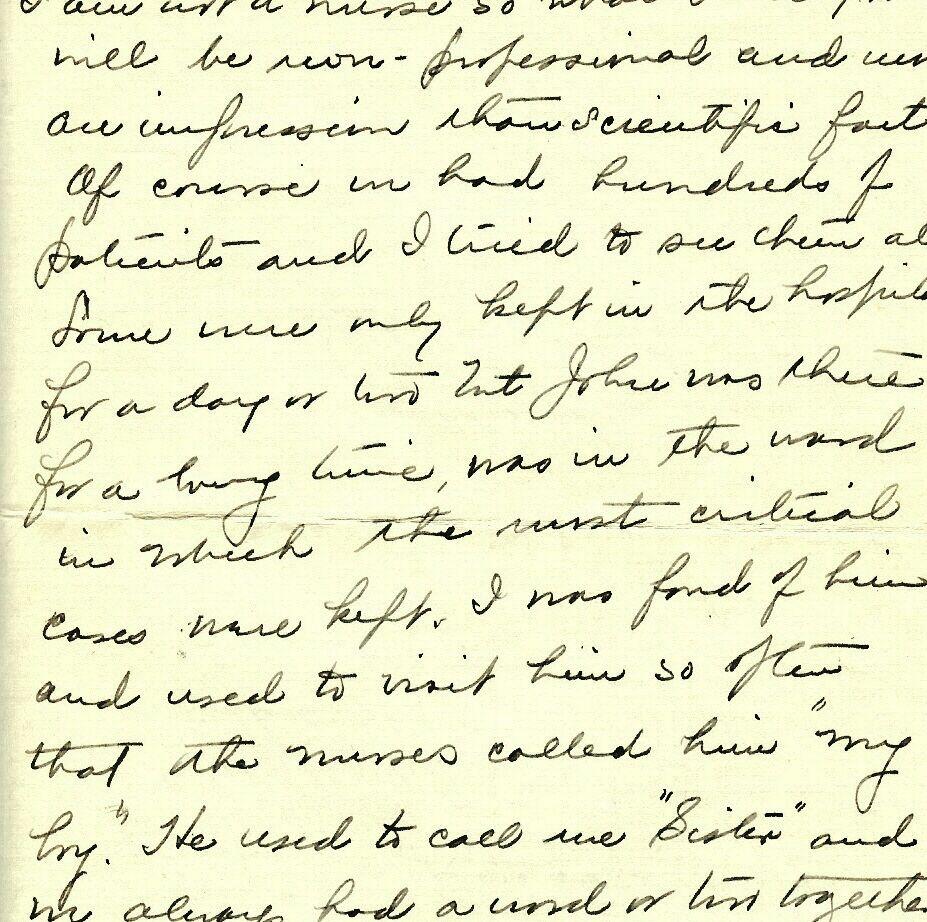 I am not a nurse so what I
will be non-professional and
an impression than scientific fact
Of course we had hundreds of
patients and I tried to see them al
Some were only kept in the hospit
for a day or two but John was there
for a long time, was in the ward
in which the most critical
cases were kept. I was fond of him
and used to visit him so often
that the nurses called him "my
boy." He used to call me "Sister" and
we always had a word or two together